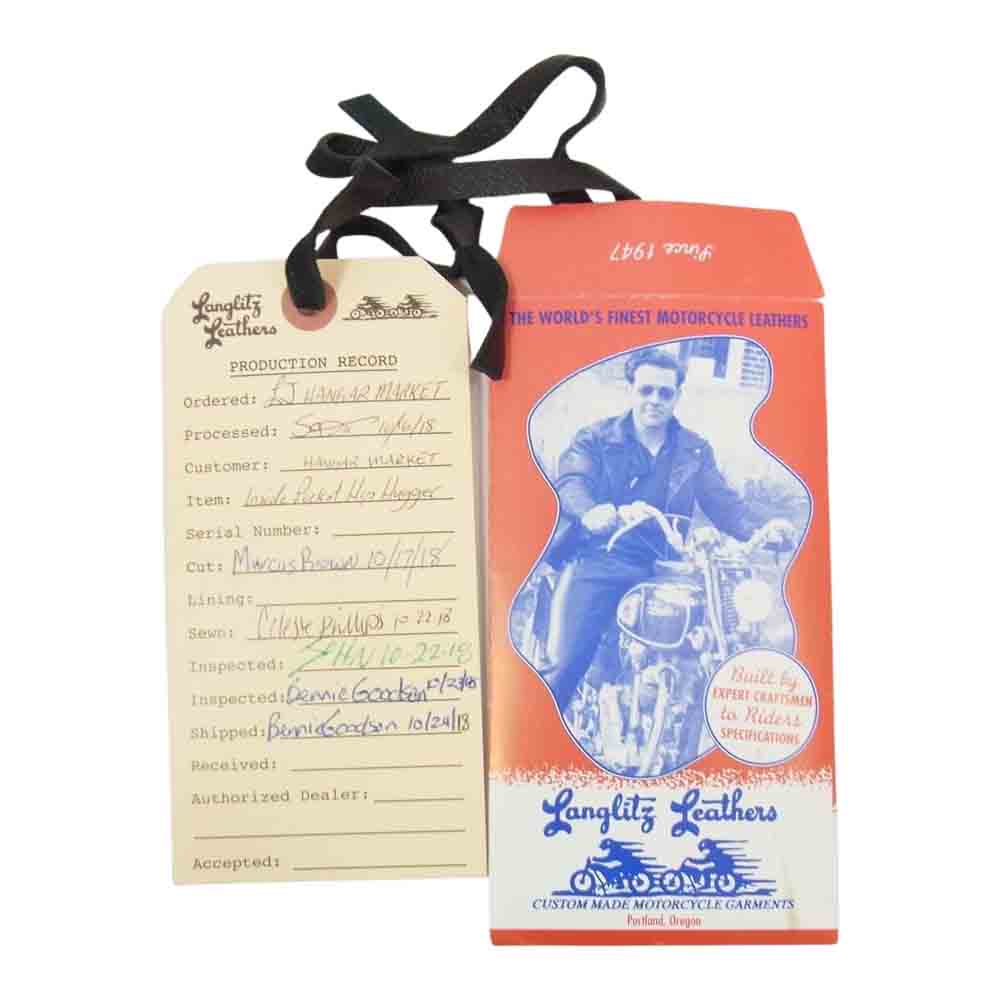 Langlitz
Leathers
PRODUCTION RECORD
Ordered: LJ HANGAR MARKET
Processed: 10/16/18
Customer: HANGAR MARKET
Item: Inside Pocket Hip Hugger
Serial Number:
Cut: Marcus Brown 10/17/18
Lining:
Sewn: Celeste Phillips 10-22-18
Inspected: 10-22-18
Inspected: Bennie Goodson 10/23/18
Shipped: Bennie Goodson 10/24/18
Received:
Authorized Dealer:
Accepted:
Since 1947
THE WORLD'S FINEST MOTORCYCLE LEATHERS
Built by
EXPERT CRAFTSMEN
to Riders
SPECIFICATIONS
Langlitz Leathers
CUSTOM MADE MOTORCYCLE GARMENTS
Portland, Oregon